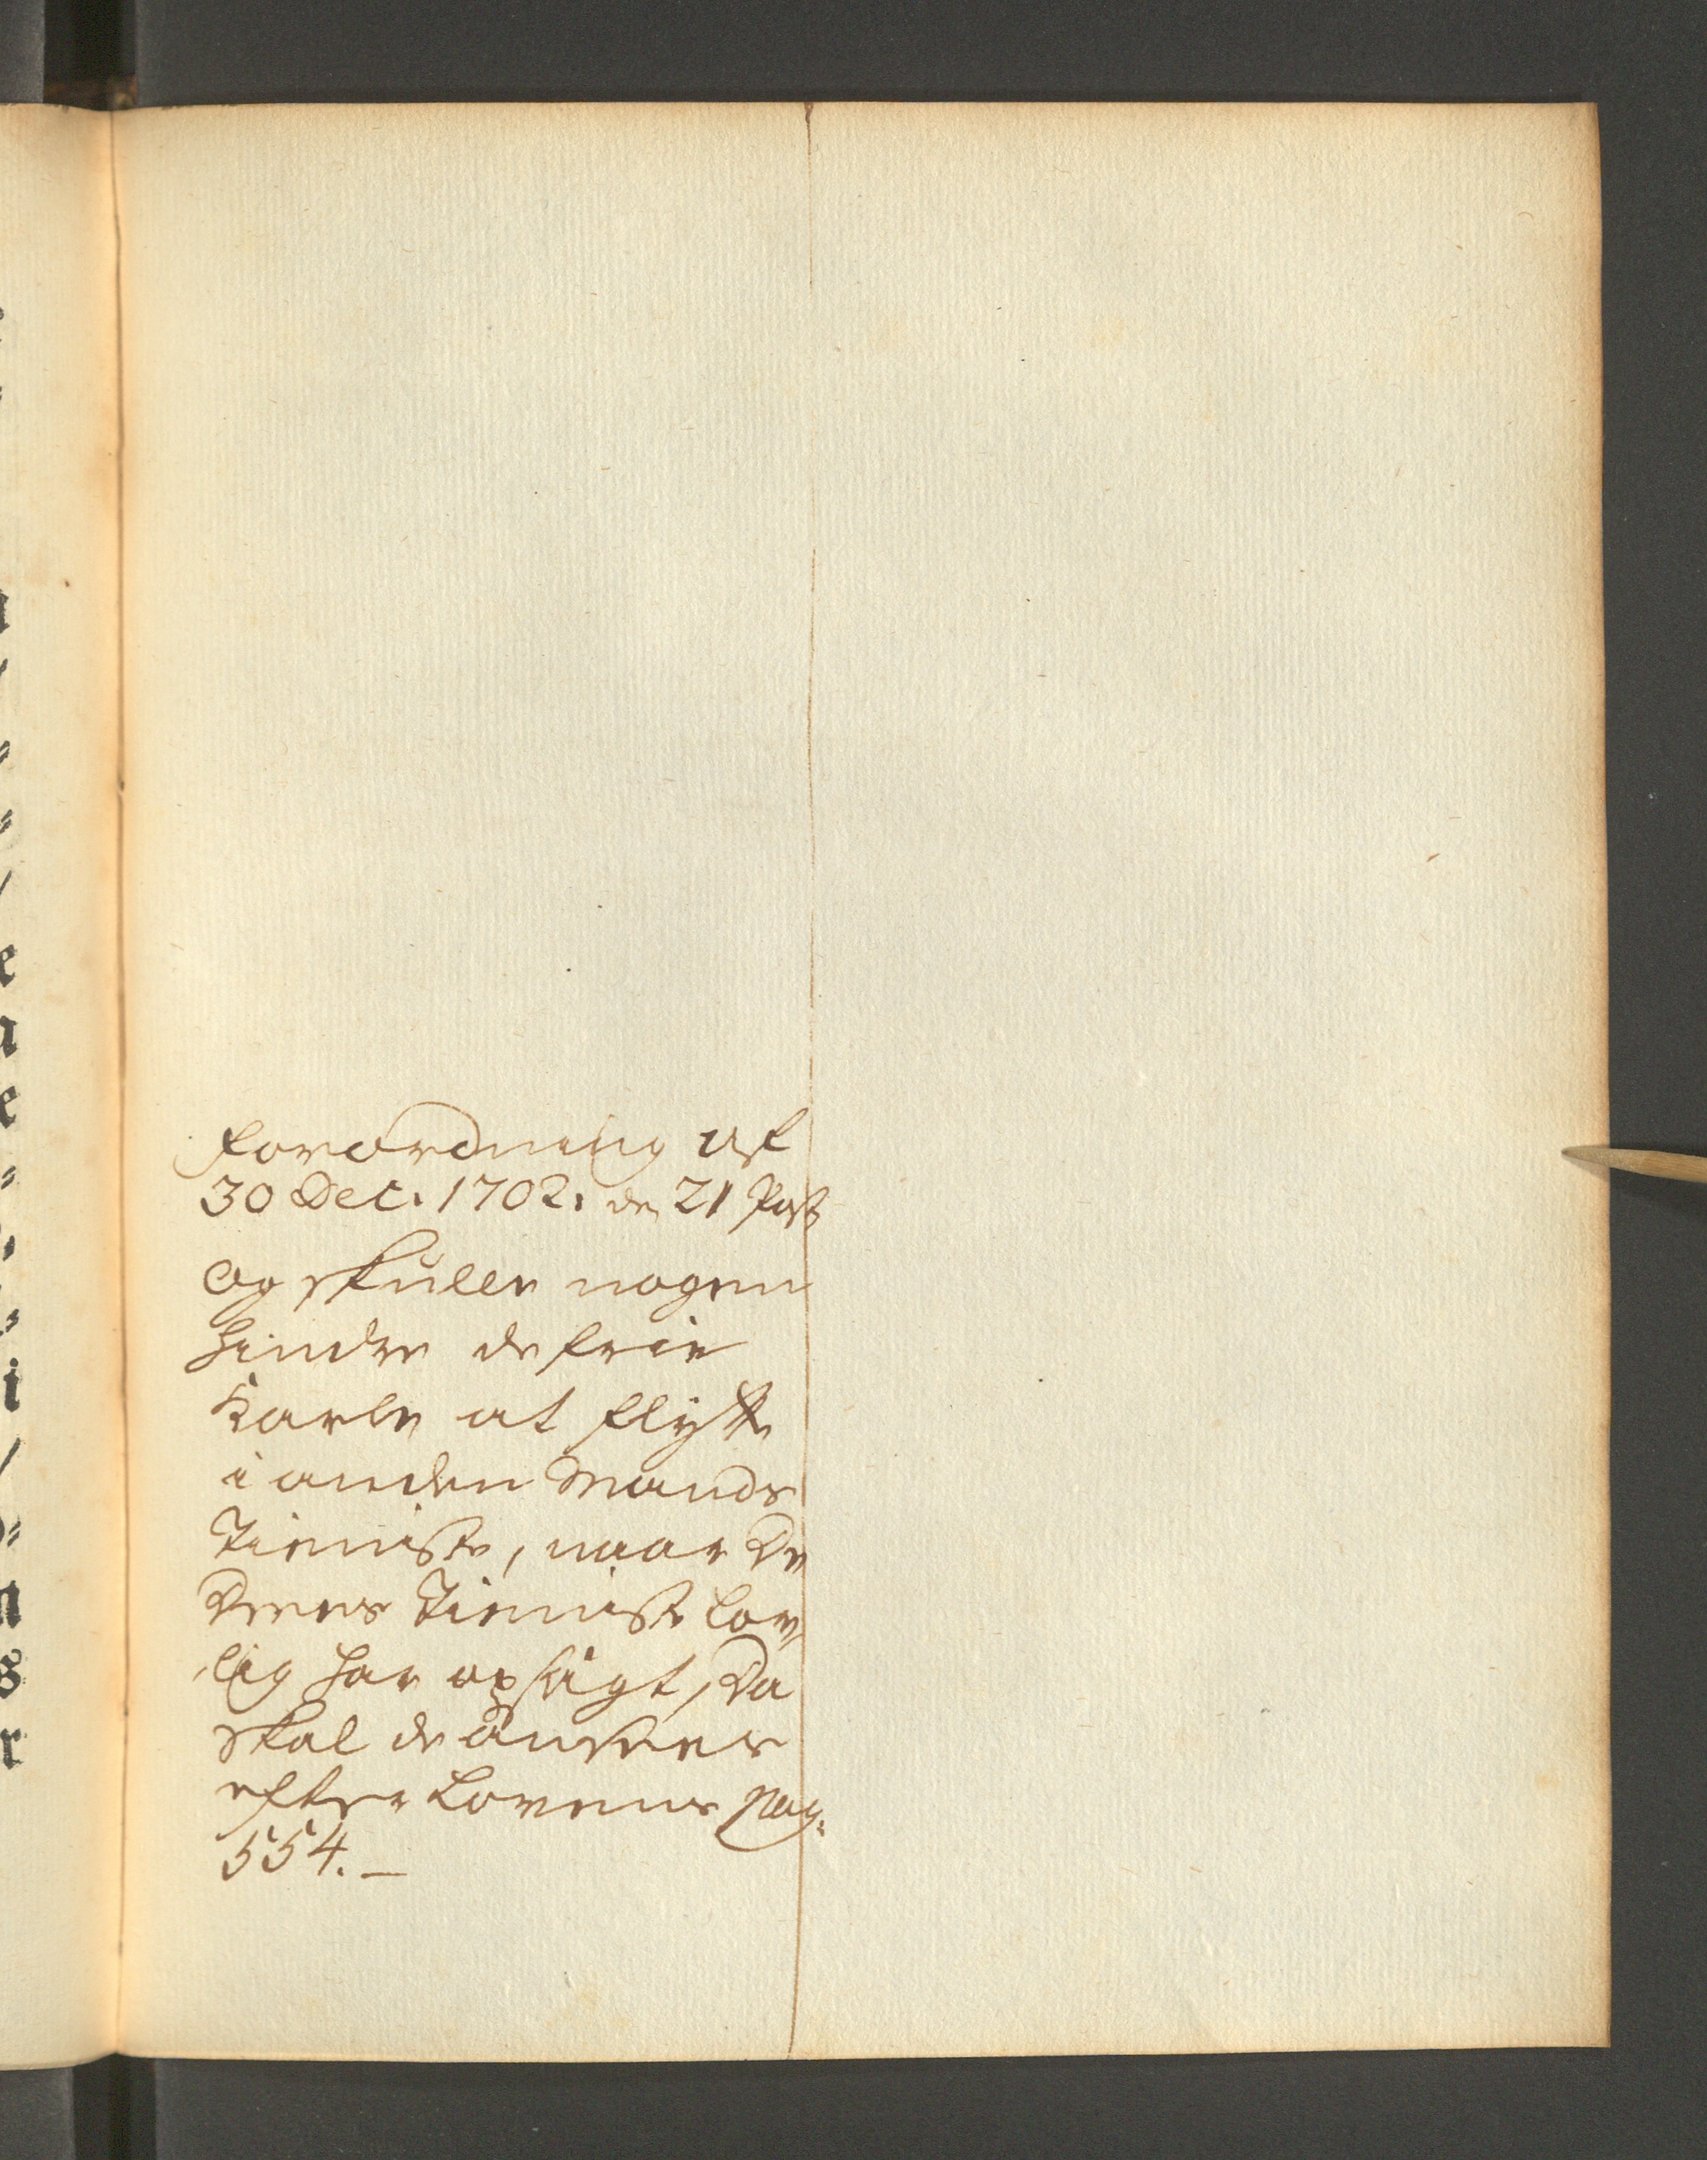 Forordning af
30 Dec. 1702. den 21 Post
Og skulle nogen
hindre de frie
Karle at flytte
i anden Mands
Tieniste, naar De
Deres Tieniste lov-
lig har opsagt, Da
skal de ansees
efter Lovens pag.
554. —